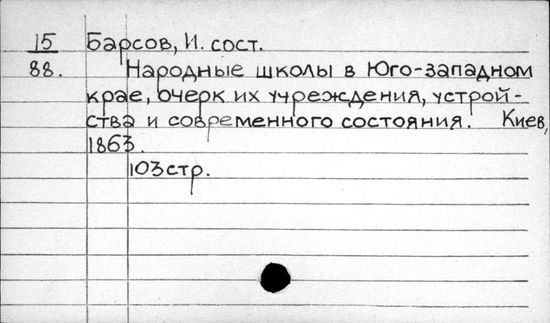 15 Барсов, И. сост.
88. Народные школы в Юго-западном
крае, очерк их учреждения, устрой-
ства и современного состояния. Киев,
1863.
103 стр.